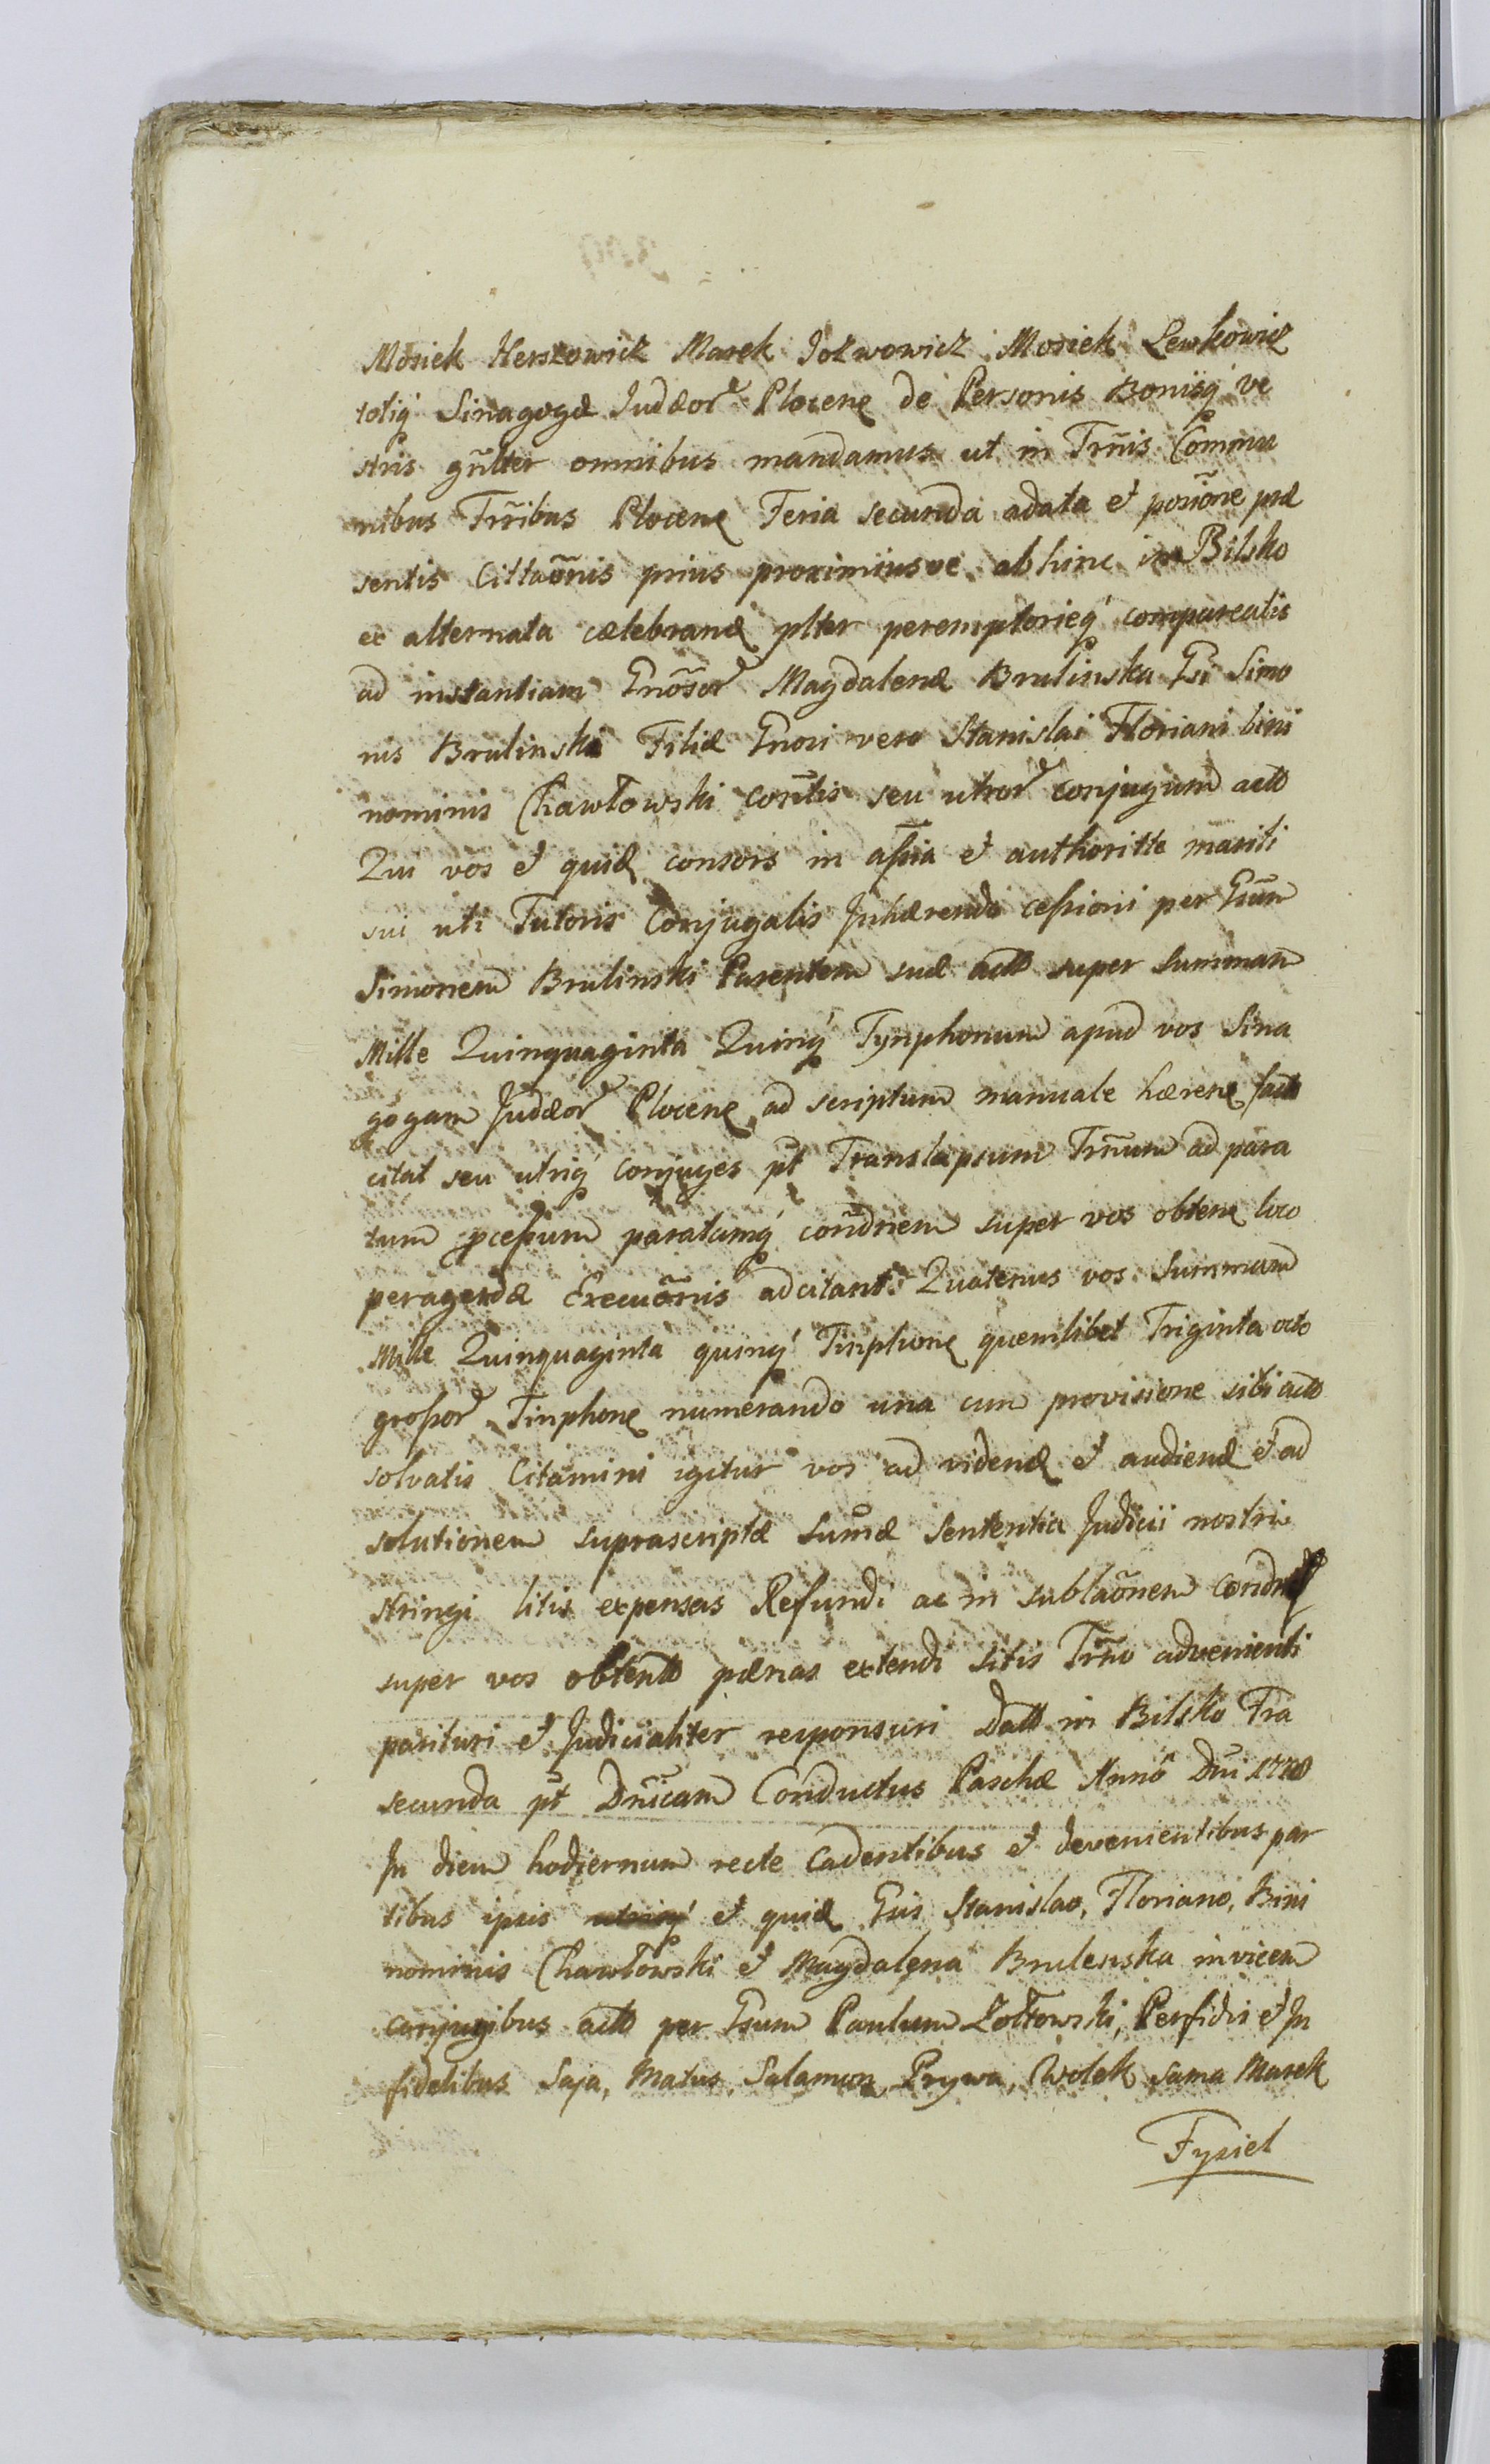 Mosiek Herszowicz Marek Jozwowicz Mosiek Lewkowicz
totiq́ Sinagogæ Judæor Plocene de Personis Bonisq́ ve
stris gn̄lter omnibus mandamus ut in Trm̄is Commu
nibus Trr̄ibus Plocene Feria secunda adata et poriōne præ
sentis Cittaōnis prius proximiusve abhinc in Bilsko
ex alternata cælebrand plter peremptorieq́ compareatis
ad instantiam Gnōsor Magdalenæ Brulinska Gsi Simo
nis Brulinski Filiæ Gnosi vero Stanislai Floriani bini
nominis Chawłowski con̄tis seu utror conjugum actt
Qui vos et quid consors in assia et authoritte mariti
sui uti Tutoris Conjugalis Inhærendo cessioni per Gsum
Simonem Brulinski Parentem suæ actt super Summam
Mille Quinquaginta Quinq́ Tynphonum apud vos Sina
gogam Judæor Plocene ad scriptum manuale hærene factt
citat seu utriq́ Conjuges pt Translapsum Trm̄um ad para
tum pcessum paratamq́ con̄dnem super vos obtene loco
peragendæ Execuōnis adcitant. Quatenus vos Summam
Mille Quinquaginta quinq́ Tinphone quemlibet Triginta octo
grossor Tinphone numerando una cum provisione sibi actt
solvatis Citamini igitur vos ad videnđ et audienđ et ad
solutionem suprascriptæ sum̄æ Sententia Judicii nostri
stringi litis expensas Refundi ac in sublaōnem condn
super vos obtentt pænas extendi sitis Trm̄o advenienti
parituri et Judicialiter responsuri Datt in Bilsko Fra
secunda pt Dnīcam Conductus Paschæ Anno Dni 1720
In diem hodiernum recte cadentibus et devenientibus par
tibus ipsis utrisq́ et quid Gsis Stanislao, Floriano, Bini
nominis Chawłowski et Magdalena Brulenska invicem
conjugibus actt per Gsum Paulum Zołtowski, Perfidis et In
fidelibus Saja, Matus, Salamon, Prywa, Wolek sama Marek
Fysiel